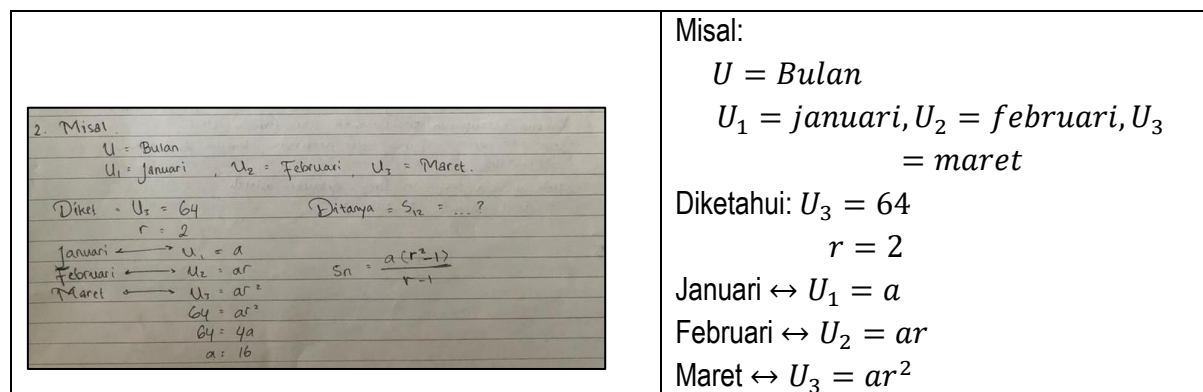 2. Misal.
U = Bulan
U₁ = Januari , U₂ = Februari, U₃ = Maret.
Diket = U₃ = 64 Ditanya = S₁₂ = ...?
r = 2
Januari ⟷ U₁ = a
Februari ⟷ U₂ = ar
Maret ⟷ U₃ = ar²
64 = ar²
64 = 4a
a = 16
Sn = a(r²-1) / r-1
Misal:
U = Bulan
U₁ = januari, U₂ = februari, U₃
= maret
Diketahui: U₃ = 64
r = 2
Januari ↔ U₁ = a
Februari ↔ U₂ = ar
Maret ↔ U₃ = ar²